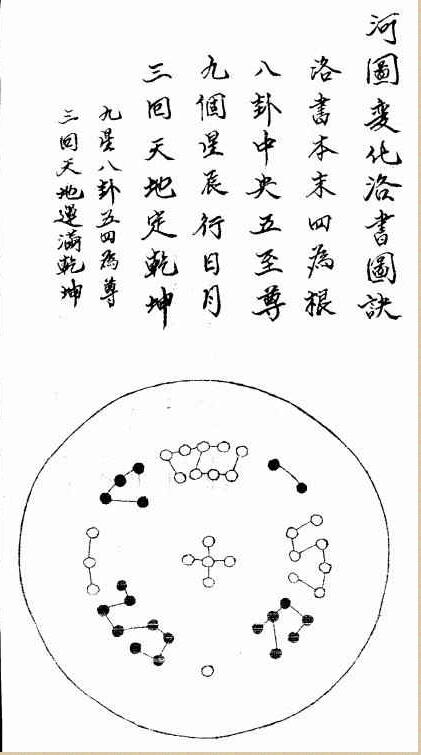 河圖變化洛書圖訣
洛書本末四為根
八卦中央五至尊
九個星辰行日月
三回天地定乾坤
九星八卦五四為尊
三回天地運滿乾坤